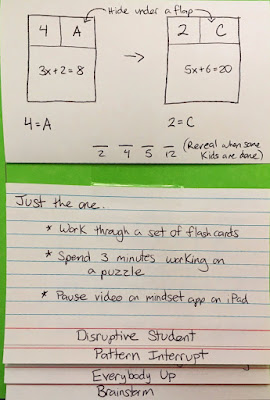 Hide under a flap
4 A
2 C
3x+2=8
5x+6=20
4=A
2=C
2 4 5 12
(Reveal when some
kids are done)
Just the one...
* Work through a set of flashcards
* Spend 3 minutes working on
a puzzle
* Pause video on mindset app on iPad
Disruptive Student
Pattern Interrupt
Everybody Up
Brainstorm